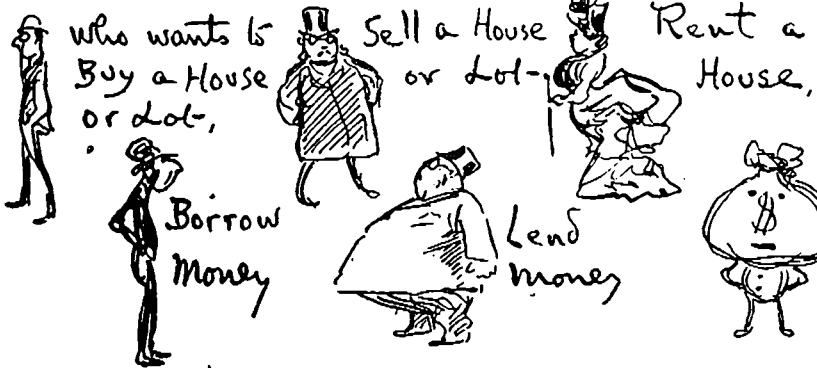 who wants to
Buy a House
or Lot,
Sell a House
or Lot-
Rent a
House,
Borrow
Money
Lend
money
$